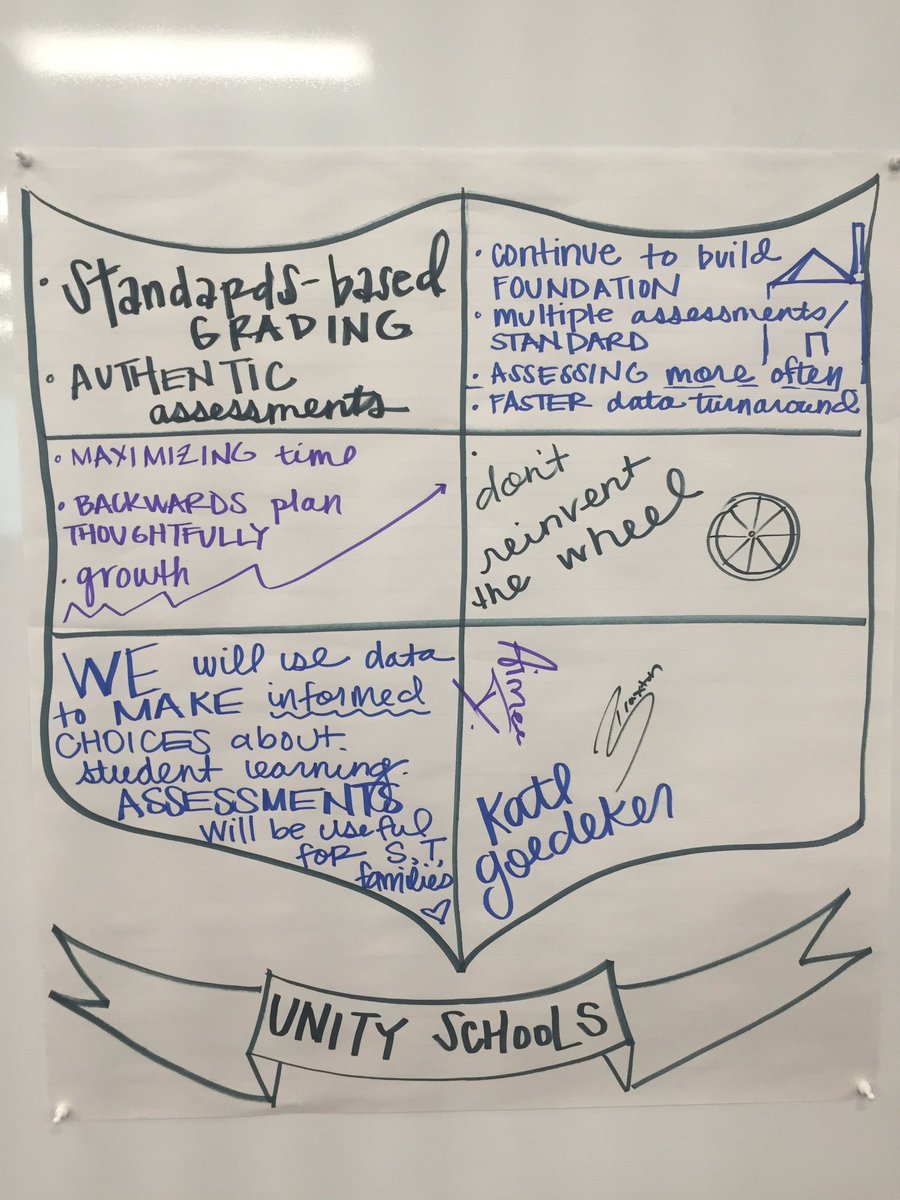 • Standards-based
GRADING
• AUTHENTIC
assessments
• continue to build
FOUNDATION
• multiple assessments/
STANDARD
• ASSESSING more often
• FASTER data turnaround
• MAXIMIZING time
• BACKWARDS plan
THOUGHTFULLY
• growth
• don't
reinvent
the wheel
WE will use data
to MAKE informed
CHOICES about
student learning.
ASSESSMENTS
will be useful
for S, T,
families
Aimee
Katl
goedeker
UNITY SCHOOLS